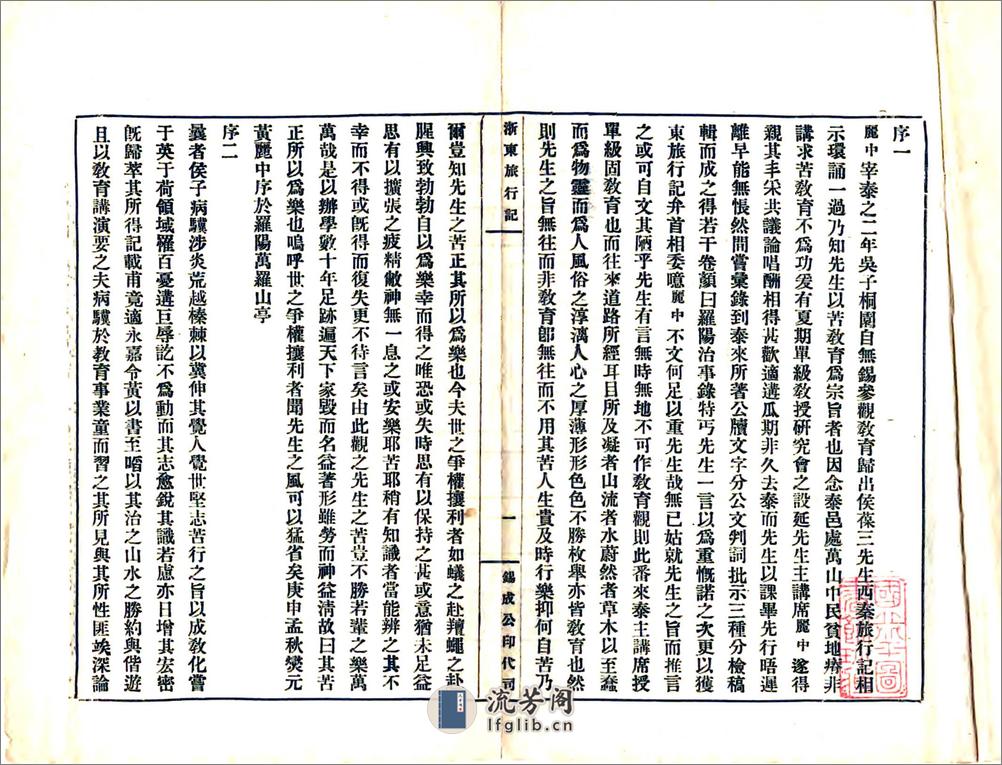 序一
麗中宰泰之二年吳子桐園自無錫參觀敎育歸出侯葆三先生西秦旅行記相
示環誦一過乃知先生以苦敎育爲宗旨者也因念泰邑處萬山中民貧地瘠非
講求苦敎育不爲功爰有夏期單級敎授研究會之設延先生主講席麗中遂得
親其丰采共議論唱酬相得甚歡適遘瓜期非久去泰而先生以課畢先行晤遲
離早能無悵然間嘗彙錄到泰來所著公牘文字分公文判詞批示三種分檢稿
輯而成之得若干卷顏曰羅陽治事錄特丐先生一言以爲重慨諾之次更以獲
東旅行記弁首相委噫麗中不文何足以重先生哉無已姑就先生之旨而推言
之或可自文其陋乎先生有言無時無地不可作敎育觀則此番來泰主講席授
單級固敎育也而往來道路所經耳目所及凝者山流者水蔚然者草木以至蠢
而爲物靈而爲人風俗之淳漓人心之厚薄形形色色不勝枚舉亦皆敎育也然
則先生之旨無往而非敎育卽無往而不用其苦人生貴及時行樂抑何自苦乃
浙東旅行記
一
錫成公印代司
爾豈知先生之苦正其所以爲樂也今夫世之爭權攘利者如蟻之赴羶蠅之赴
腥興致勃勃自以爲樂幸而得之唯恐或失時思有以保持之甚或意猶未足益
思有以擴張之疲精敝神無一息之或安樂耶苦耶稍有知識者當能辨之其不
幸而不得或旣得而復失更不待言矣由此觀之先生之苦豈不勝若輩之樂萬
萬哉是以辦學數十年足跡遍天下家毀而名益著形雖勞而神益淸故曰其苦
正所以爲樂也嗚呼世之爭權攘利者聞先生之風可以猛省矣庚申孟秋爕元
黃麗中序於羅陽萬羅山亭
序二
曩者侯子病驥涉炎荒越榛棘以冀伸其覺人覺世堅志苦行之旨以成敎化嘗
于英于荷領域罹百憂遘巨辱訖不爲動而其志愈銳其識若慮亦日增其宏密
旣歸萃其所得記載甫竟適永嘉令黃以書至㗖以其治之山水之勝約與偕遊
且以敎育講演要之夫病驥於敎育事業童而習之其所見與其所性匪埃深論
流芳阁
lfglib.cn